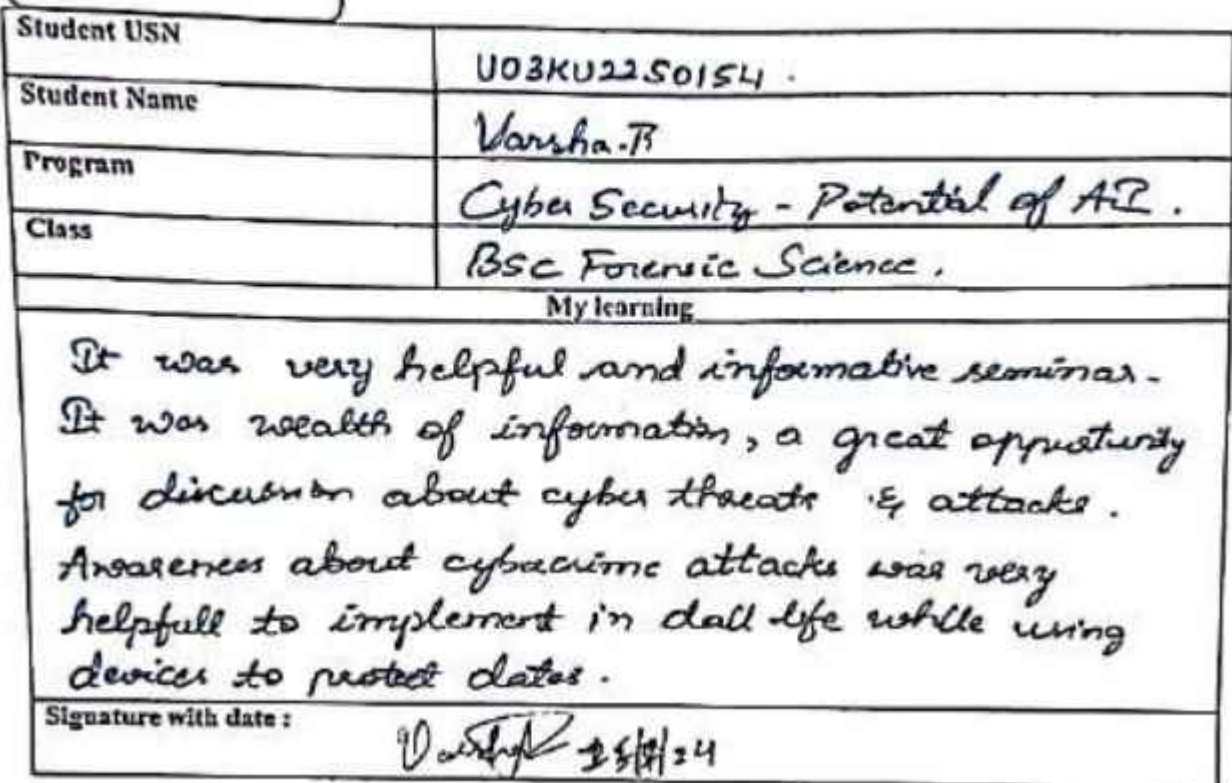 Student USN
U03KU22S0154.
Student Name
Varsha.R
Program
Cyber Security - Potential of AI.
Class
BSc Forensic Science.
My learning
It was very helpful and informative seminar.
It was wealth of information, a great oppustunity
for discussion about cyber threats & attacks.
Awareness about cybercrime attacks was very
helpfull to implement in dail life while using
devices to protect datas.
Signature with date :